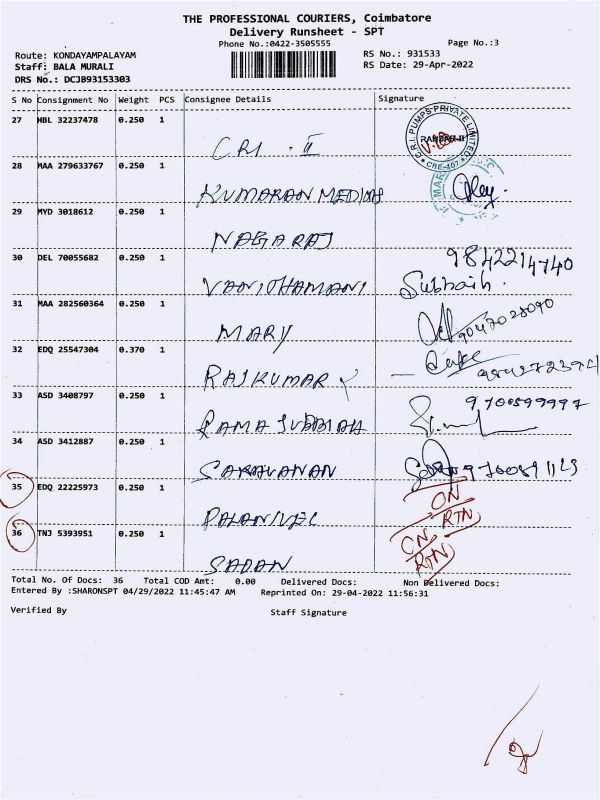 THE PROFESSIONAL COURIERS, Coimbatore
Delivery Runsheet - SPT
Phone No.:0422-3505555
Page No.:3
Route: KONDAYAMPALAYAM
RS No.: 931533
Staff: BALA MURALI
RS Date: 29-Apr-2022
DRS No.: DCJB93153303
S No Consignment No Weight PCS Consignee Details Signature
27 MBL 32237478 0.250 1
C.R.I. PUMPS PRIVATE LIMITED
CRE-107
CRI - II
28 MAA 279633767 0.250 1
KUMARAN MEDICALS
29 MYD 3018612 0.250 1
NAGARAJ
30 DEL 70055682 0.250 1
9842214740
VANITHAMANI
31 MAA 282560364 0.250 1
9047028090
MARY
32 EDQ 25547304 0.370 1
RAJKUMAR
33 ASD 3408797 0.250 1
9700599997
RAMA SUBBIAH
34 ASD 3412887 0.250 1
SARAVANAN
35 EDQ 22225973 0.250 1
CN
RTN
PALANIVEL
36 TNJ 5393951 0.250 1
CN
RTN
SADAN
Total No. Of Docs: 36 Total COD Amt: 0.00 Delivered Docs: Non Delivered Docs:
Entered By :SHARONSPT 04/29/2022 11:45:47 AM Reprinted On: 29-04-2022 11:56:31
Verified By Staff Signature